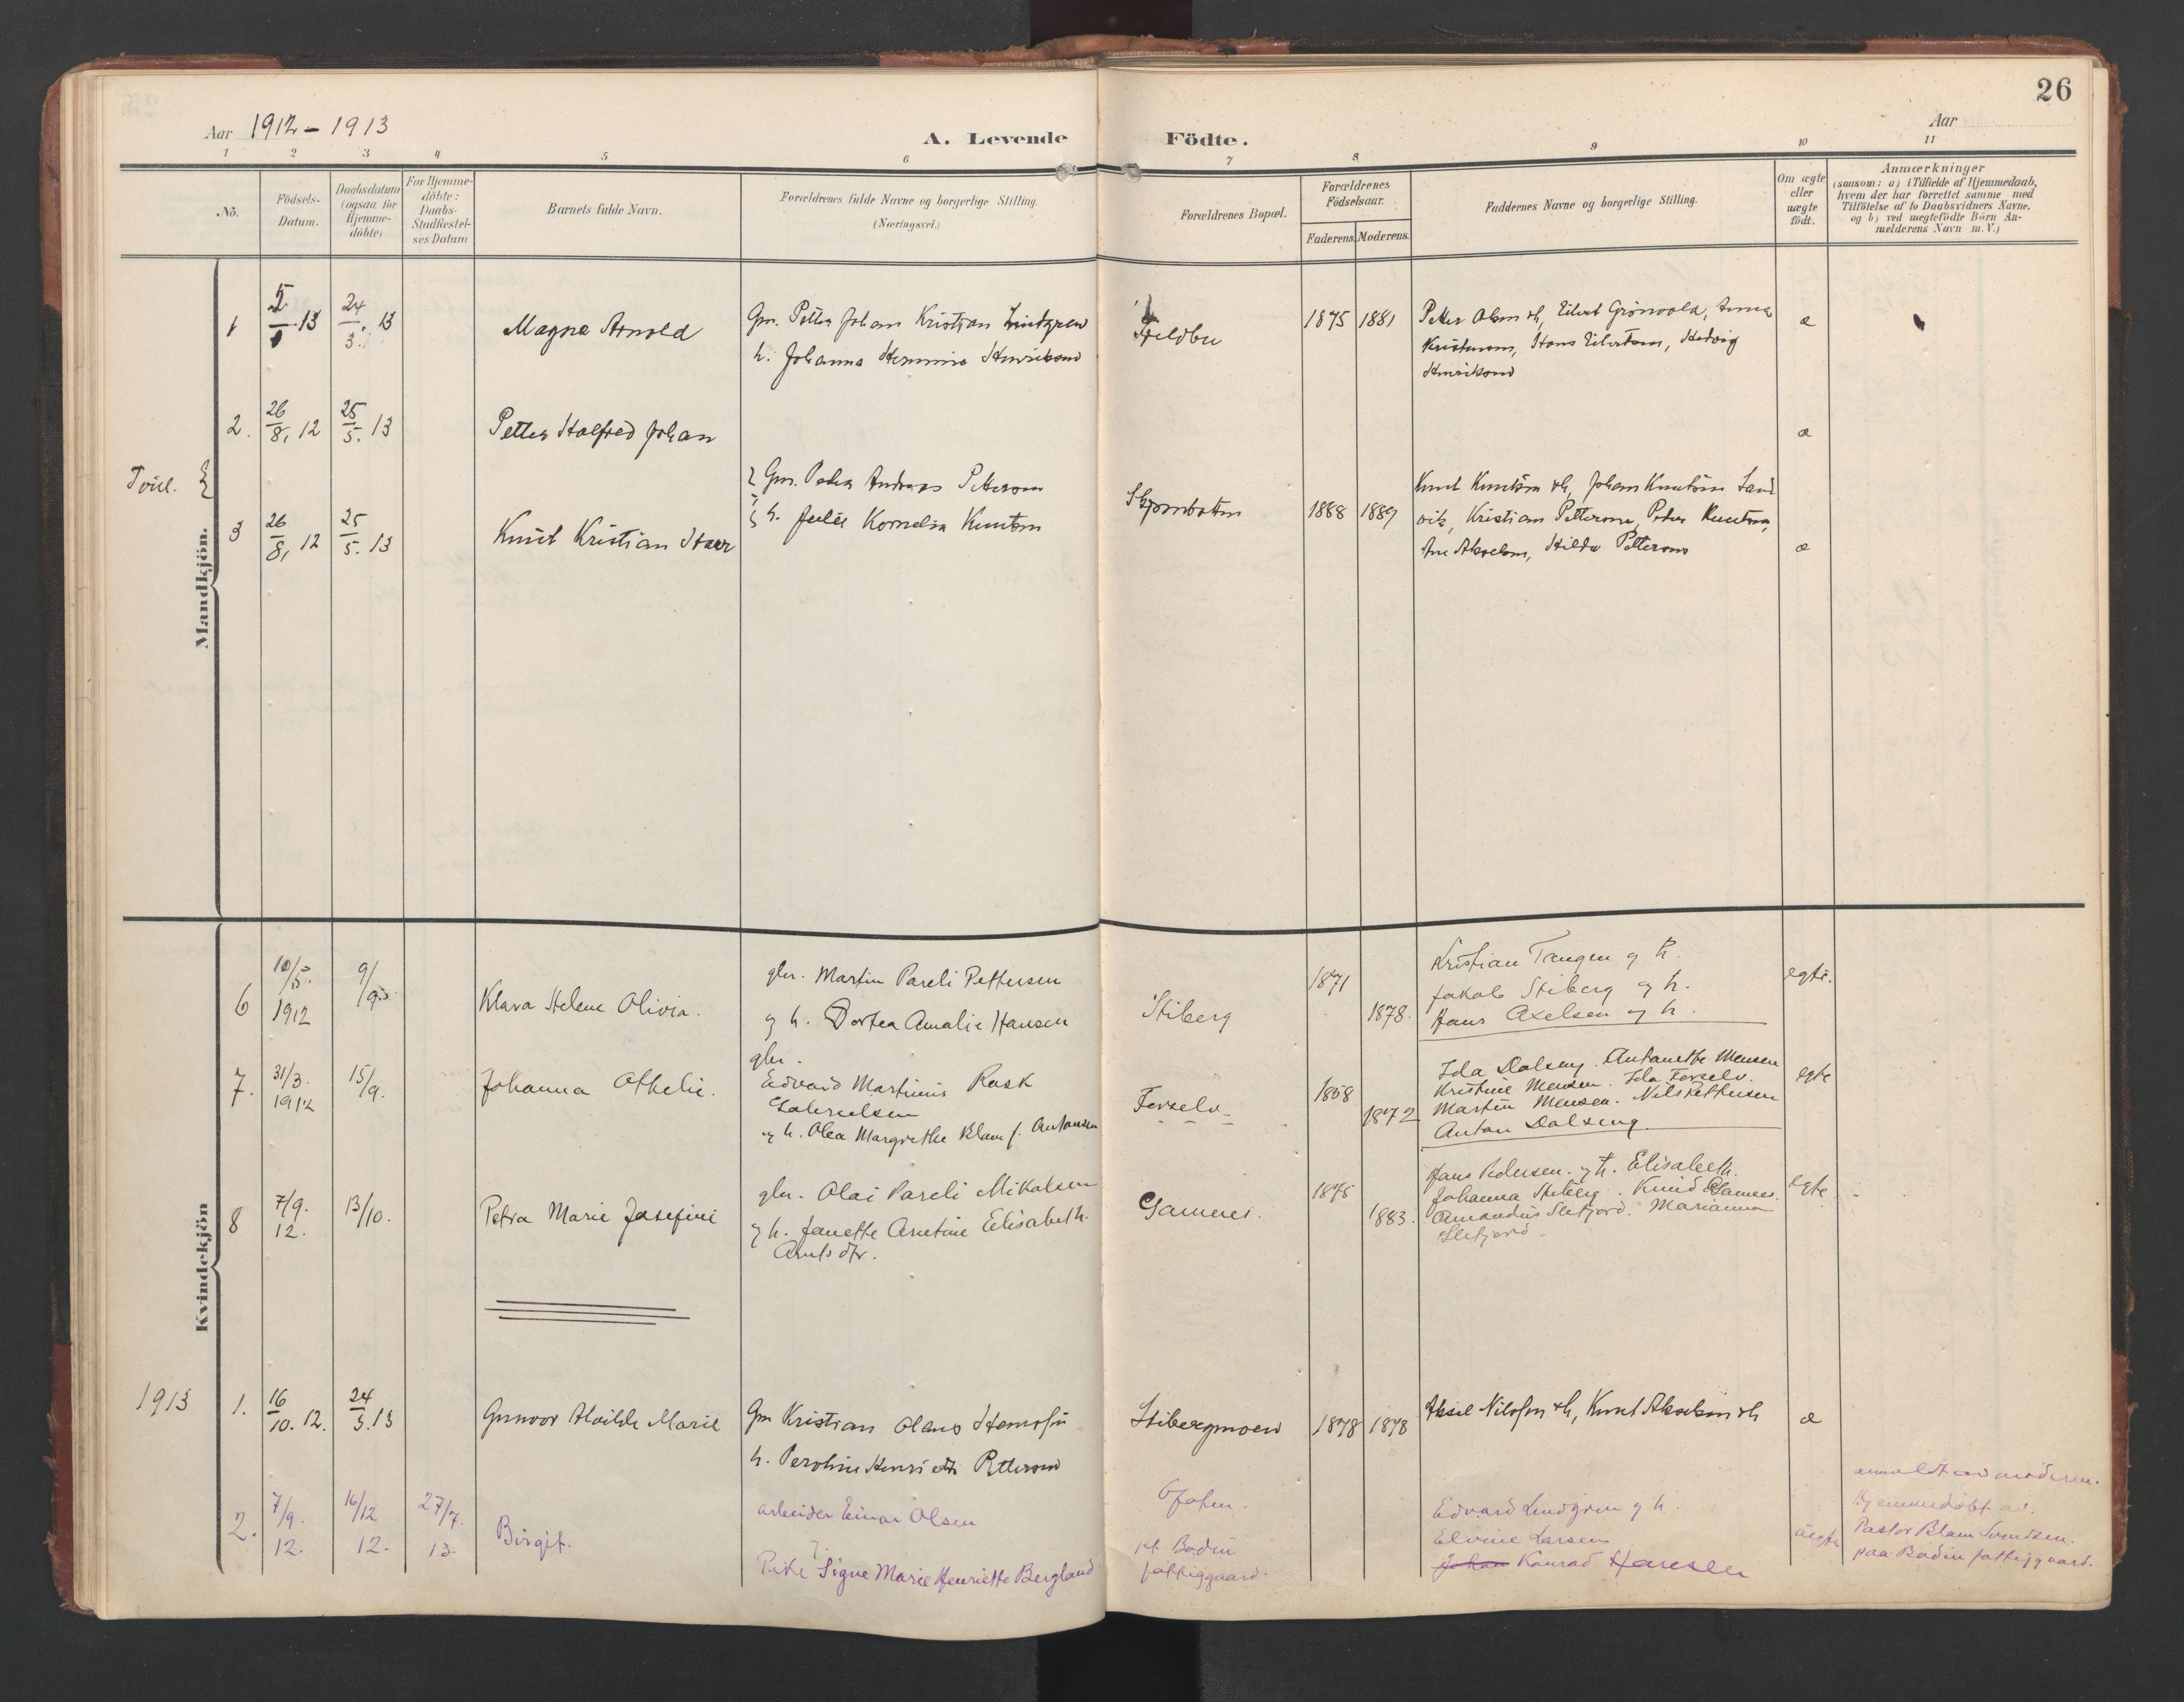 26
Aar 1912-1913
A. Levende Födte.
Aar
1 2 3 4 5 6 7 8 9 10 11
No.
Födsels-
Datum.
Daabsdatum
(ogsaa for
Hjemme-
döbte)
For Hjemme-
döbte:
Daabs-
Stadfæstel-
ses Datum
Barnets fulde Navn.
Forældrenes fulde Navne og borgerlige Stilling.
(Næringsvei.)
Forældrenes Bopæl.
Forældrenes
Födselsaar.
Faderens. Moderens.
Faddernes Navne og borgerlige Stilling.
Om ægte
eller
uægte
födt.
Anmærkninger
(saasom: a) i Tilfælde af Hjemmedaab,
hvem der har forrettet samme med
Tilföielse af to Daabsvidners Navne.
og b) ved uægtefödte Börn An-
melderens Navn m. V.)
Mandkjön.
1 13 24/3. 13 Magna Arnold
Gm. Petter Johan Kristian Lindgren
h. Johanna Hermine Henriksen
1875 1881
Petter Olsen & h, Eilert Grönvold, Anna
Kristensen, Hans Eilertsen, Hedvig
Henriksen
æ
2. 26/8, 12 25/5. 13 Petter Halfred Johan
æ
Tvill.
Gm. Peder Andreas Petterson
h. Julie Kornelia Knutsen
1888 1889
3 26/8, 12 25/5. 13 Knut Kristian
Knut Knutsen & h, Johan Knutsen Sand
vik, Kristian Petterson, Peder Knutsen,
Ane Akselsen, Hilda Petterson
æ
Kvindekjön
6 10/5. 1912 9/9 Klara Helene Olivia.
gbr. Martin Pareli Pettersen
og h. Dortea Amalie Hansen
Stiberg
1871 1878.
Kristian Tangen og h.
Jakob Stiberg og h.
Hans Axelsen og h.
egte.
7. 31/3. 1912 15/9. Johanna Othelie.
gbr.
Edvard Martinus Rask
Gabrielsen
og h. Olea Margrethe Klam f. Antonsen
Forselv
1868 1872
Ida Dalseng. Antonette Mensen
Kristine Mensen. Ida Forselv.
Martin Mensen. Nils Pettersen
Anton Dalseng.
egte
8 7/9. 12. 13/10. Petra Marie Josefine
gbr. Olai Pareli Mikalsen
og h. Janette Arntine Elisabeth
Arntsdtr.
Gamnes.
1875 1883.
Hans Pedersen. og h. Elisabeth.
Johanna Stiberg. Knud Gamnes.
Amandus Sletjord. Marianna
Sletjord.
egte
1913
1. 16/10. 12. 24/3. 13 Gunvor Alvilde Marie
Gm Kristian Olaus Hansen
h. Peroline Henriette Petterson
Stibergmoen 1878 1878
Aksel Nilsson & h, Knut Akselsen & h
æ
2. 7/9. 12. 16/12 12. 27/7. 13. Birgit.
arbeider Einar Olsen
Pike Signe Marie Henriette Bergland
Ofoten.
pt Bodin
fattiggaard.
Edvard Lindgren og h.
Elvine Larsen
Johan Konrad Hansen
uægte
anmeldt av moderen.
Hjemmedøbt av
Pastor Blom Svendsen.
paa Bodin fattiggaard.